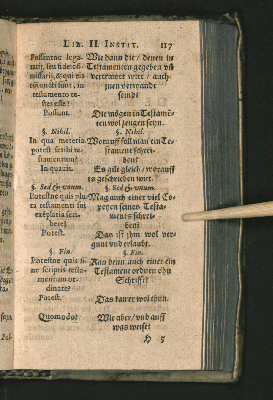 LIB. II. INSTIT. 117
Possuntne lega-
tarij, seu fidei cō-
missarij, & qui eis
cōiuncti sunt, in
testamento te-
stes esse?
Wie dann die / denen im
Testamenten gegeben vñ
vermacht wirt / auch
jnen verwandt
seind?
Possunt.
Die mögen in Testamē-
ten wol zeugen seyn.
§. Nihil.
§. Nihil.
In qua materia
potest scribi te-
stamentum?
Worauff soll man ein Te-
stament schrei-
ben?
In quauis.
Es gilt gleich / worauff
es geschrieben wirt.
§. Sed & vnum.
§. Sed & vnum.
Possuntne quis plu
ra testamenti sui
exēplaria scri-
bere?
Mag auch einer viel Co-
peyen seines Testa-
ments schrei-
ben?
Potest.
Das ist jhm wol ver-
gunt vnd erlaubt.
§. Fin.
§. Fin.
Potestne quis si-
ne scriptis testa-
mentum or-
dinare?
Kan denn auch einer ein
Testament ordnen ohn
Schrifft?
Potest.
Das kan er wol thun.
Quomodo?
Wie aber / vnd auff
was weise?
H 5